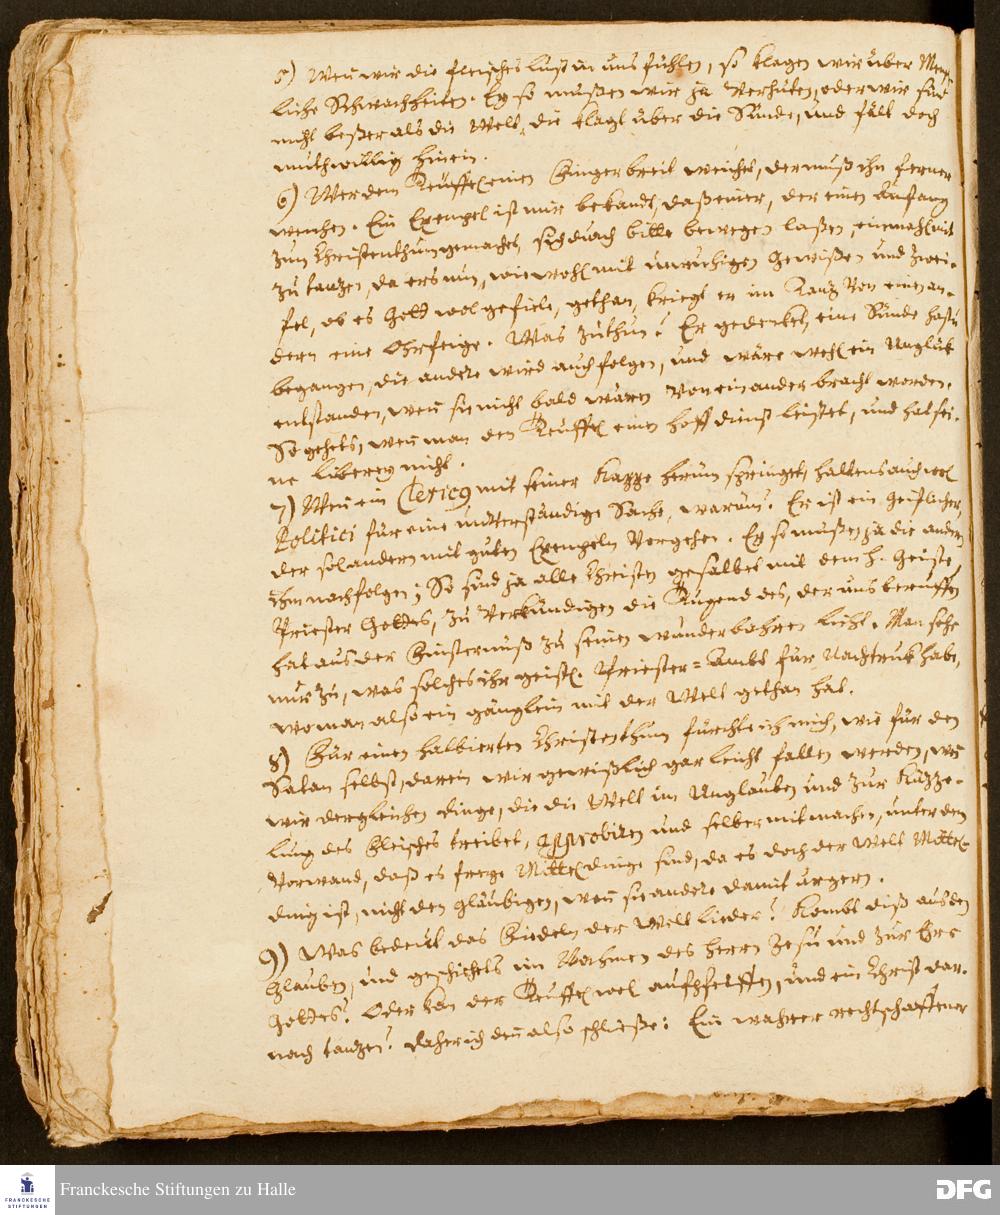 5) Weñ wir die fleisches lust in uns fühlen, so klagen wir über Mensch-
liche Schwachheiten. Ey so müßen wir ja verhüten, oder wir sind
nicht beßer als die Welt, die klagt über die Sünde, und fält doch
muthwillig hinein.
6) Wer dem Teuffel einen Finger breit weichet, der muß ihn ferner
weichen. Ein Exempel ist mir bekandt, daß einer, der einen Anfang
zum Christenthum gemachet, sich durch bitte bewegen laßen, einmahl mit
zu tantzen, da ers nun, wiewohl mit unruhigen Gewißen und Zwei-
fel, ob es Gott wol gefiele, gethan, kriegt er im Tantz von einem an-
dern eine Ohrfeige. Was zuthun? Er gedencket, eine Sünde hastu
begangen, die andere wird auch folgen, und wäre wohl ein Unglük
entstanden, weñ sie nicht bald wären von einander bracht worden.
So gehets, weñ man den Teuffel einen hoff dienst leistet, und hat sei-
ne liberey nicht.
7) Weñ ein Clericus mit seiner Kappe herum springet, haltens auch wol
Politici für eine unverständige Sache, warum? Er ist ein Geistlicher,
der sol andern mit guten Exempeln vorgehen. Ey so müßen ja die andern
ihm nachfolgen; So sind ja alle Christen gesalbet mit dem H. Geiste,
Priester Gottes, zu verkündigen die Tugend des, der uns beruffen
hat aus der Finsternuß zu seinem wunderbahren licht. Man sehe
nur zu, was solches ihr geistl. Priester-Ambt für Nachtruk habe,
wo man also ein gänglein mit der Welt gethan hat.
8) Für einen halbierten Christenthum fürchte ich mich, wie für den
Satan selbst, darein wir gewißlich gar leicht fallen werden, wo
wir dergleichen dinge, die die Welt im Unglauben und zur Kütze-
lung des Fleisches treibet, approbiren und selber mit machen, unter dem
Vorwand, daß es freye Mitteldinge sind, da es doch der Welt Mittel-
ding ist, nicht den gläubigen, weñ sie andere damit ärgern.
9) Was bedeut das Fiedeln der Welt lieder? Kombt diß aus den
Glauben, und geschichts im Nahmen des Herrn Jesu und zur Ehre
Gottes? Oder kan der Teuffel wol aufpfeiffen, und ein Christ dar-
nach tantzen? daher ich deñ also schließe: Ein wahrer rechtschaffener
Franckesche Stiftungen zu Halle
FRANCKESCHE
STIFTUNGEN
DFG